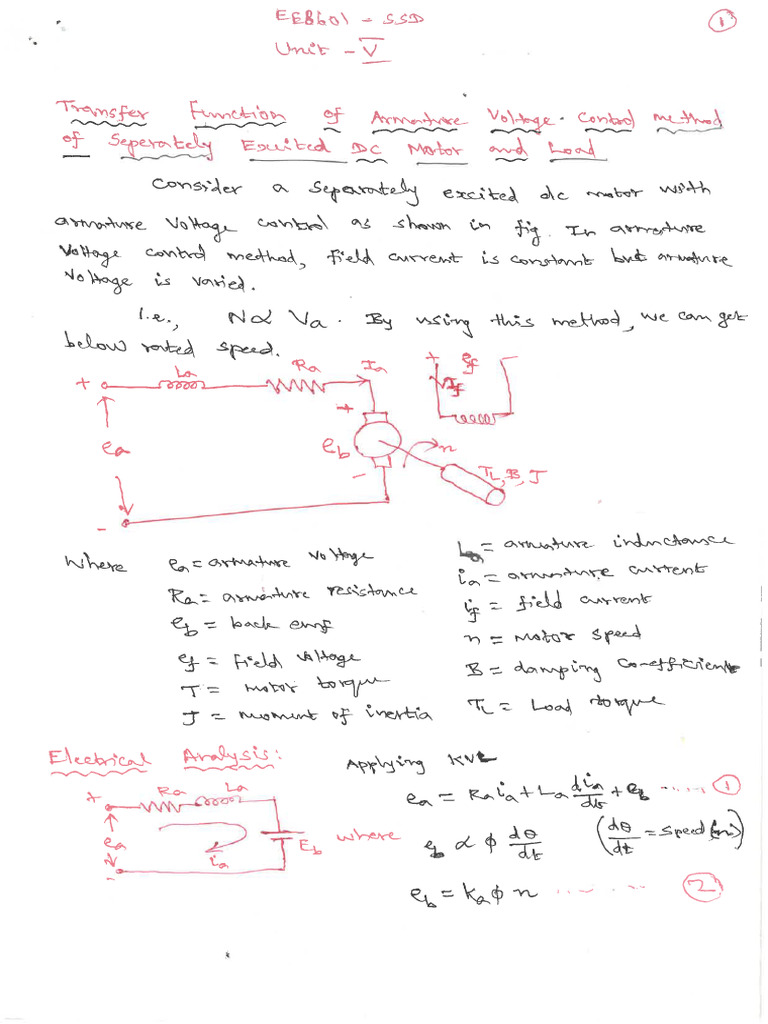 EE8601 - SSD
①
Unit - V
Transfer Function of Armature Voltage - Control method
of Seperately Excited DC Motor and Load
Consider a separately excited dc motor with
armature voltage control as shown in fig. In armature
voltage control method, field current is constant but armature
voltage is varied.
I.e., N ∝ Va. By using this method, we can get
below rated speed.
+ La Ra Ia + ef
If
+
ea eb n
- TL, B, J
-
Where ea = armature voltage
Ra = armature resistance
eb = back emf
ef = Field voltage
T = motor torque
J = moment of inertia
La = armature inductance
ia = armature current
if = field current
n = motor speed
B = damping co-efficient
TL = Load torque
Electrical Analysis:
+ Ra La
ea ia Eb
-
Applying KVL
ea = Ra ia + La dia/dt + eb ..... ①
where eb ∝ ϕ dθ/dt (dθ/dt = speed (n))
eb = ka ϕ n ........ ②